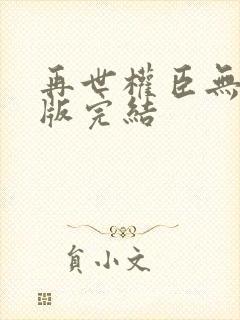 再世權臣無
版完結
負小文